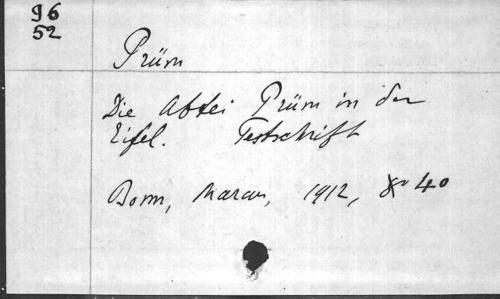 96
52
Prüm
Die Abtei Prüm in der
Eifel. Festschrift
Bonn, Marcus, 1912, 40